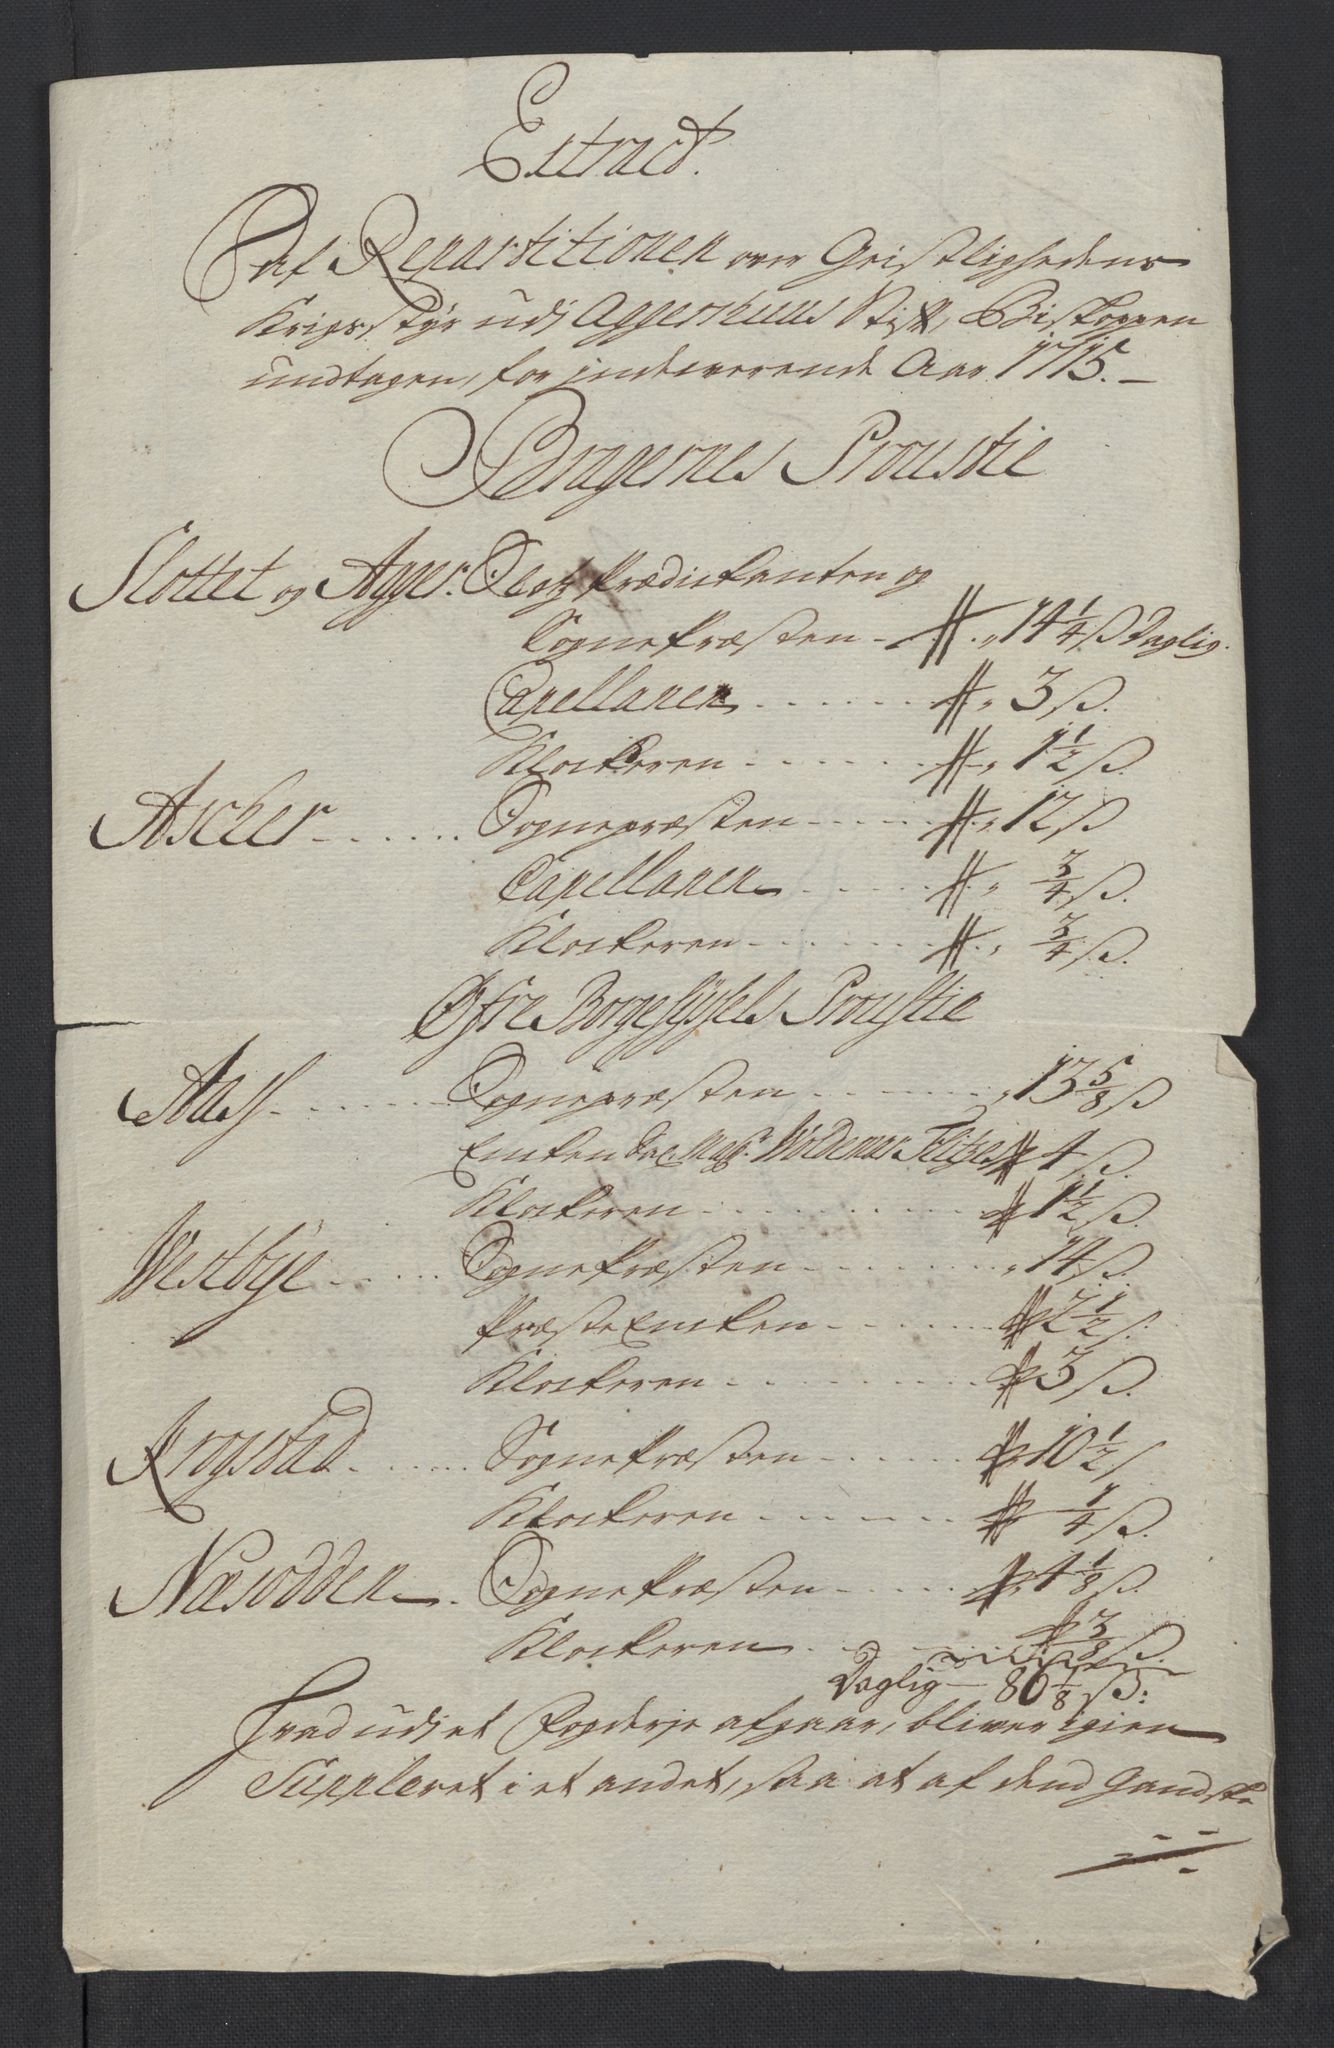 Extract.
Af Repartitionen over Geistlighedens
Krigsstyr udj Aggershuus Stift, Biskoppen
undtagen, for indeverende Aar 1715.-
Bragernes Proustie
Slottet og Agger. Slotz Prædickanten og
Sognepræsten - 14 1/4 ß Daglig.
Capellanen ...... 3 ß.
Klockeren ...... 1 1/2 ß.
Ascher ...... Sognepræsten ...... 12 ß
Capellanen ...... 3/4 ß.
Klockeren ...... 3/4 ß.
Øfre Borgesÿsels Proustie
Aass ...... Sognepræsten ...... 13 5/8 ß
Encken Sal. Magr. Woldemar 4 ß.
Klockeren ...... 1 1/2 ß.
Westbÿe ...... Sognepræsten ...... 14 ß.
Præste Encken ...... 2 1/2 ß.
Klockeren ...... 3 ß.
Krogstad ...... Sognepræsten ...... 10 1/2 ß
Klockeren ...... 1/4 ß.
Næsodden. Sognepræsten ...... 4 1/8 ß.
Klockeren ...... 3/8 ß.
Daglig - 86 1/8 ß:
Hvad udj et Fogderje afgaar, bliver igien
Suppleret i et andet, saa at af dend gandske